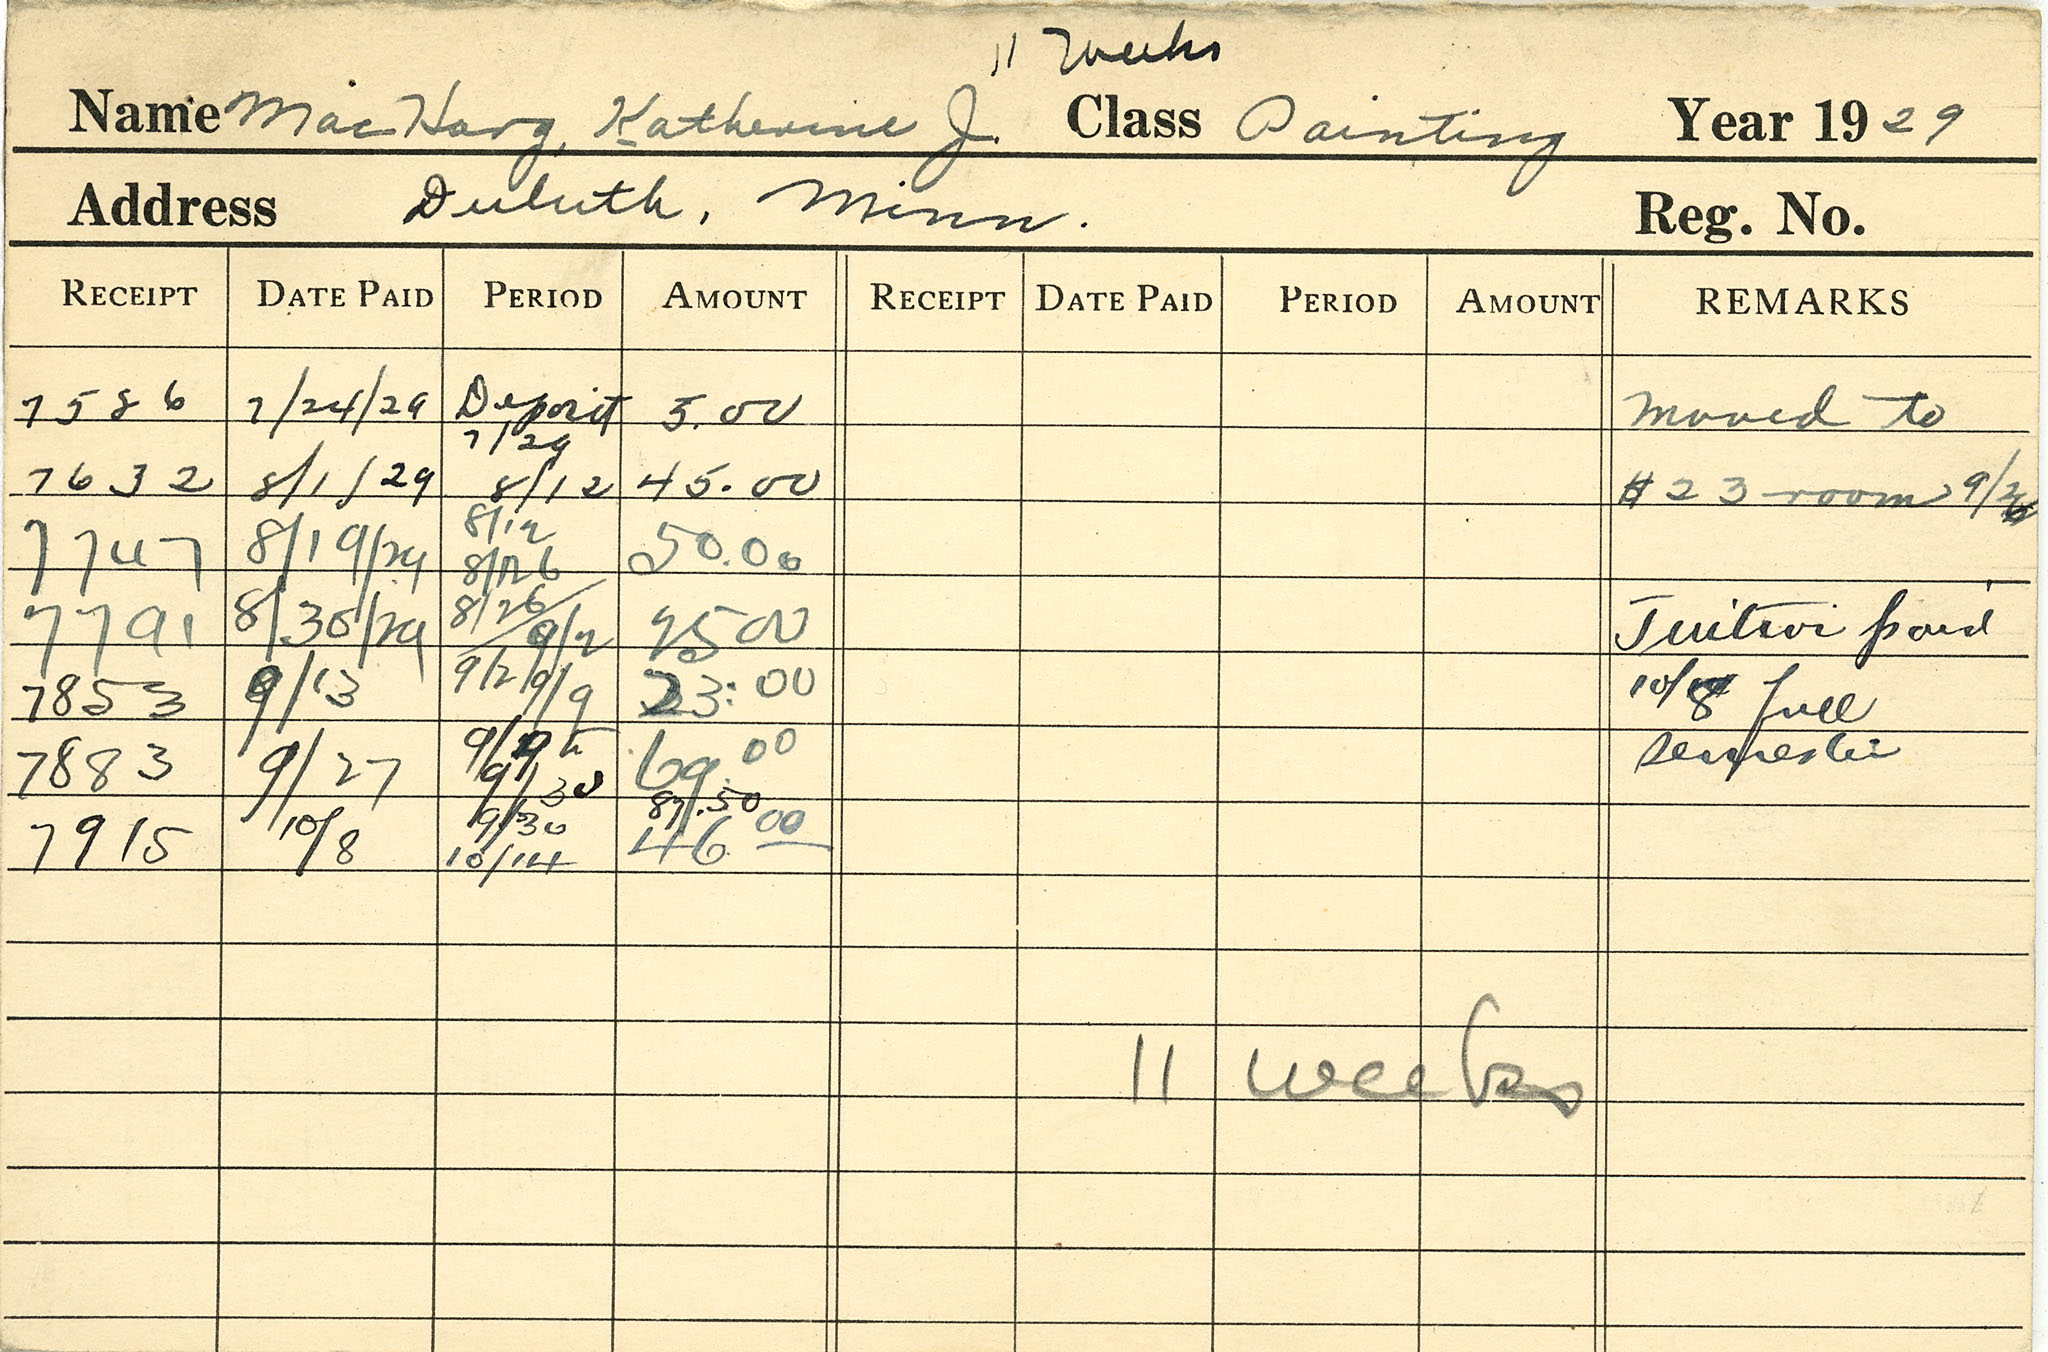 11 Weeks
Name MacHarg, Katherine J. Class Painting Year 1929
Address Duluth, Minn. Reg. No.
RECEIPT DATE PAID PERIOD AMOUNT RECEIPT DATE PAID PERIOD AMOUNT REMARKS
7586 7/24/29 Deposit 5.00 moved to
7/29
7632 8/1/29 8/12 45.00 #23 room
8/12
7747 8/19/29 8/26 50.00
8/26
7791 8/30/29 9/2 25 00 Tuition paid
9/2
7853 9/13 9/9 23.00 10/8 full
7883 9/27 9/30 69.00 semester
9/30 87.50
7915 10/8 10/14 46.00
11 weeks